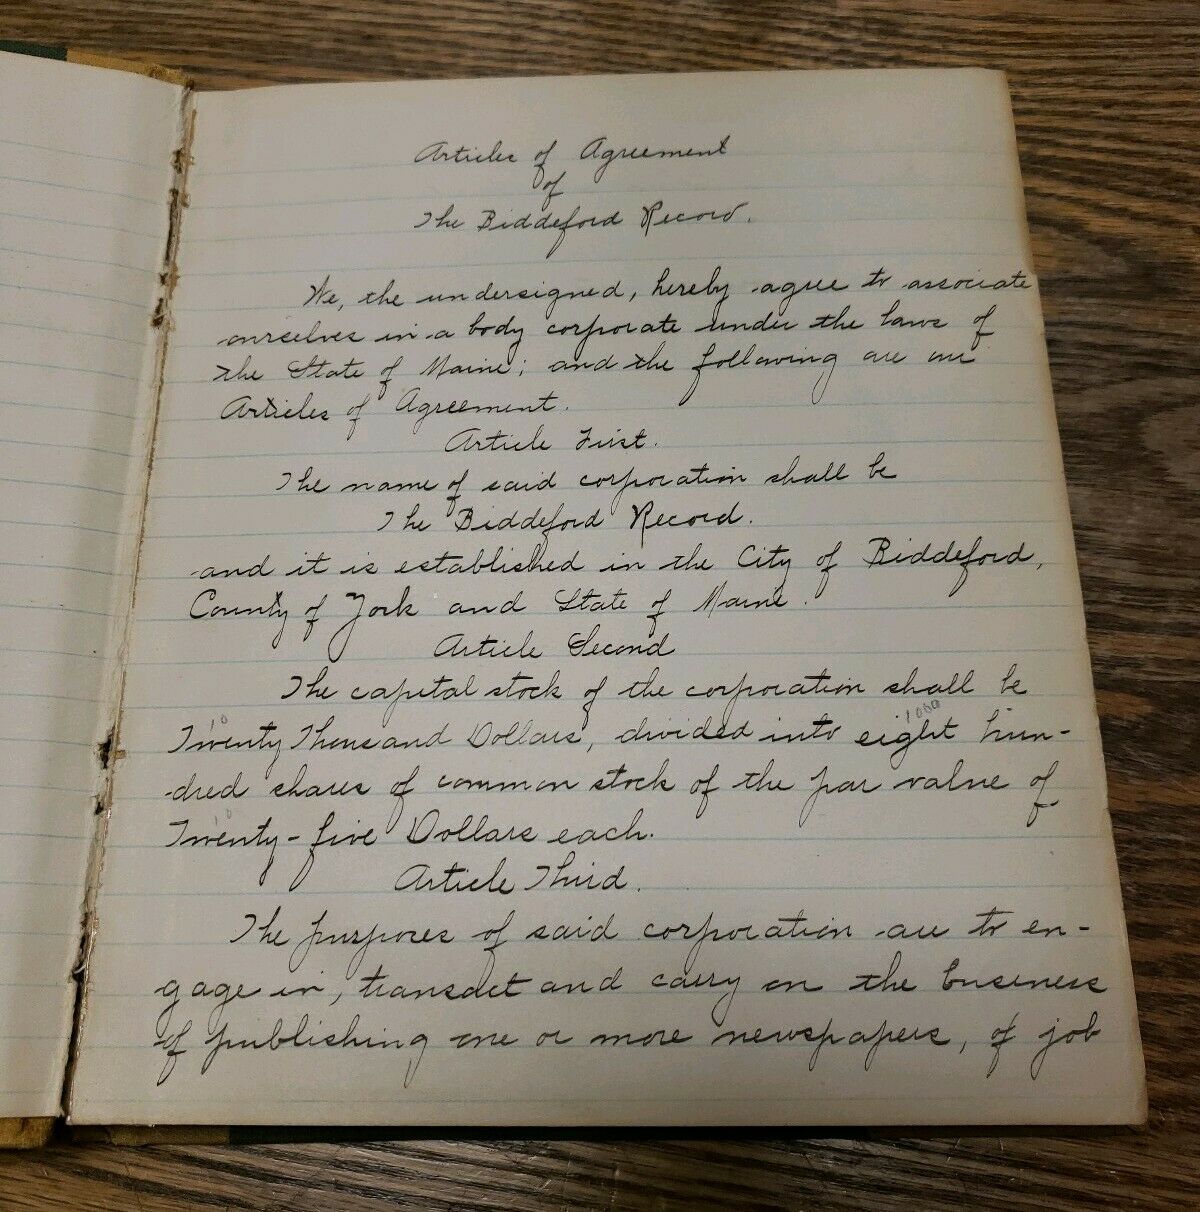 Articles of Agreement
of
The Biddeford Record.
We, the undersigned, hereby agree to associate
ourselves in a body corporate under the laws of
the State of Maine; and the following are our
Articles of Agreement.
Article First.
The name of said corporation shall be
The Biddeford Record.
and it is established in the City of Biddeford,
County of York and State of Maine.
Article Second
The capital stock of the corporation shall be
10 1000
Twenty Thousand Dollars, divided into eight hun-
dred shares of common stock of the par value of
10
Twenty-five Dollars each.
Article Third.
The purposes of said corporation are to en-
gage in, transact and carry on the business
of publishing one or more newspapers, of job